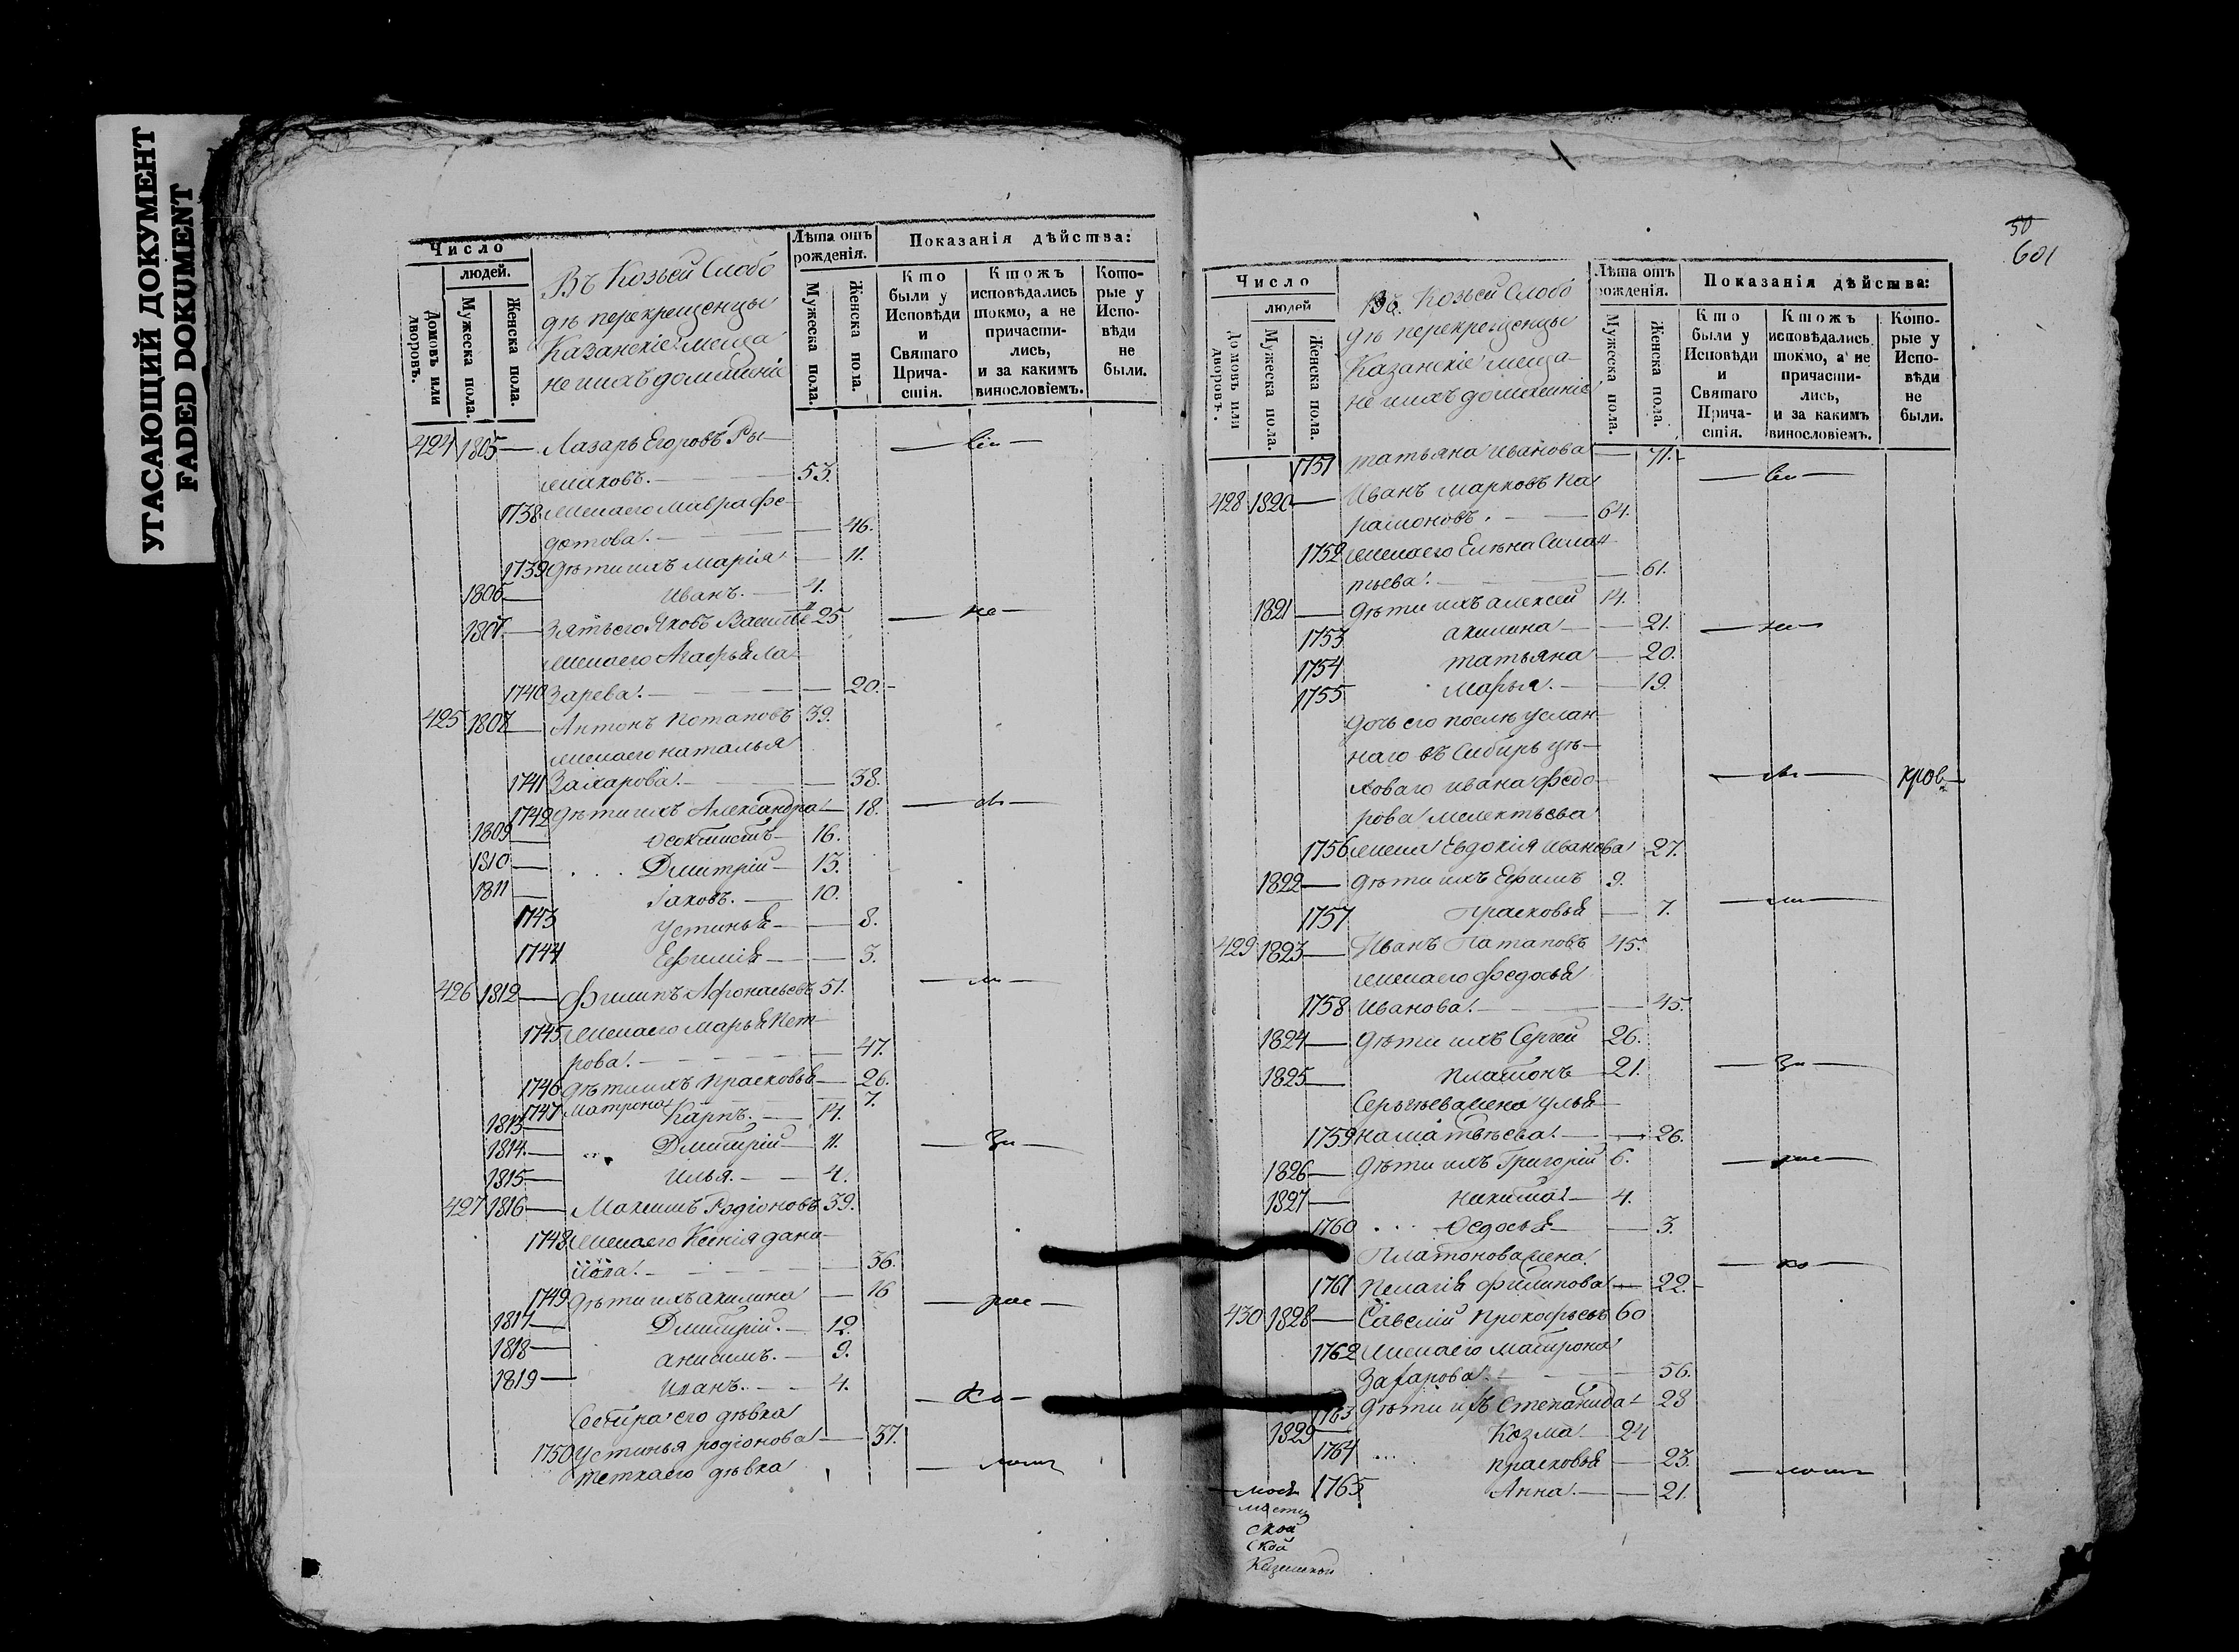 УГАСАЮЩИЙ ДОКУМЕНТ
FADED DOKUMENT
Число
людей.
Домовъ или дворовъ.
Мужеска пола.
Женска пола.
Въ Козьей Слобо
дѣ перекрещенцы
Казанскіе меща
не и ихъ домашніе
Лѣта отъ рожденія.
Мужеска пола.
Женска пола.
Показанія дѣйства:
Кто были у Исповѣди и Святаго Причастія.
Ктожъ исповѣдались токмо, а не причастились, и за какимъ винословіемъ.
Которые у Исповѣди не были.
424 1805 — Лазарь Егоровъ Ры
маковъ. — 53.
1738 жена его Мавра Фе
дотова. — 46.
1739 дѣти ихъ Марія — 11.
1806 — Иванъ. — 4.
1807 — Зять его Яковъ Василье 25
жена его Агафья Ла
1740 зарева. — 20.
425 1808 — Антонъ Потаповъ 39.
жена его наталья
1741 Захарова. — 38.
1742 дѣти ихъ Александра — 18.
1809 — Феоктистъ — 16.
1810 — Дмитрій — 13.
1811 — Іаковъ. — 10.
1743 Устинья — 8.
1744 Ефимія — 3.
426 1812 — Филипъ Афонасьевъ 51.
1745 жена его Марья Пет
рова. — 47.
1746 дѣти ихъ Прасковья — 26.
1747 Матрона — 7.
1813 — Карпъ. — 14.
1814 — Дмитрій — 11.
1815 — Илья. — 4.
427 1816 — Максимъ Родіоновъ 39.
1748 жена его Ксенія дани
лова. — 36.
1749 дѣти ихъ акилина — 16
1817 — Дмитрій. — 12.
1818 — анисимъ. — 9.
1819 — Иванъ. — 4.
Сестра его дѣвка
1750 Устинья родіонова — 37.
тетка его дѣвка
50
601
Число
людей
Домовъ или дворовъ.
Мужеска пола.
Женска пола.
Въ Козьей Слобо
дѣ перекрещенцы
Казанскіе меща
не и ихъ домашніе
Лѣта отъ рожденія.
Мужеска пола.
Женска пола.
Показанія дѣйства:
Кто были у Исповѣди и Святаго Причастія.
Ктожъ исповѣдались токмо, а не причастились, и за какимъ винословіемъ.
Которые у Исповѣди не были.
1751 татьяна иванова — 71.
428 1820 — Иванъ марковъ Па
рамоновъ. — 64.
1752 жена его Елена
61.
1821 — дѣти ихъ алексей 14.
1753 акилина — 21.
1754 татьяна — 20.
1755 Марья. — 19.
дочь его послѣ услан
наго въ Сибирь цѣ
ховаго ивана Федо
рова
1756 жена Евдокія иванова 27.
1822 — дѣти ихъ Ефимъ 9.
1757 Прасковья — 7.
429 1823 — Иванъ Патаповъ 45.
жена его Федосья
1758 иванова. — 45.
1824 — дѣти ихъ Сергей 26.
1825 — платонъ — 21.
Сергѣева жена улья
1759 на матвѣева. — 26.
1826 — дѣти ихъ Григорій 6.
1827 — никита — 4.
1760 Федосья — 3.
Платонова жена
1761 Пелагія филипова — 22.
430 1828 — Савелій Прокофьевъ 60
1762 жена его Матрона
Захарова. — 56.
1763 дѣти ихъ Степанида — 28
1829 — Козма — 24
1764 прасковья — 23.
1765 Анна. — 21.
ской